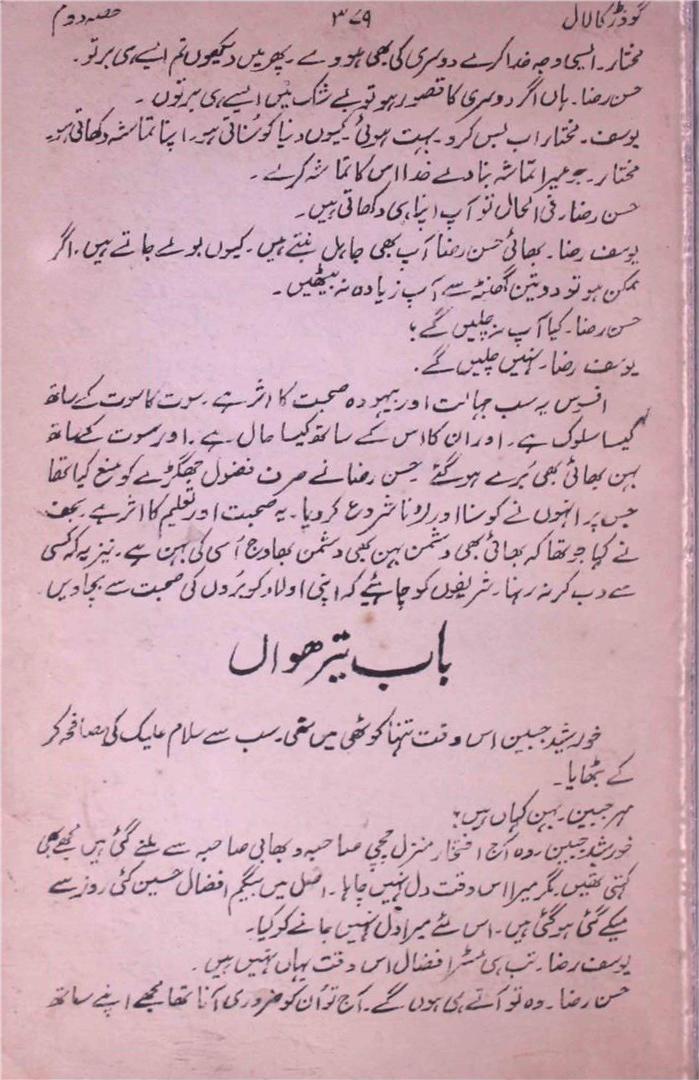 گودڑ کا لال ۳۷۹ حصہ دوم
مختار۔ ایسی وجہ خدا کرے دوسری کی بھی ہووے۔ پھر میں دیکھوں تم ایسے ہی برتو۔
حسن رضا۔ ہاں اگر دوسری کا قصور ہو تو بے شک میں ایسے ہی برتوں۔
یوسف۔ مختار اب بس کرو۔ بہت ہوئی کیوں دنیا کو سناتی ہو۔ اپنا تماشہ دکھاتی ہو۔
مختار۔ جو میرا تماشہ بنادے خدا اس کا تماشہ کرے۔
حسن رضا۔ فی الحال تو آپ اپنا ہی دکھاتی ہیں۔
یوسف رضا۔ بھائی حسن رضا آپ بھی جاہل بنتے ہیں۔ کیوں بولے جاتے ہیں۔ اگر
ممکن ہو تو دو تین گھنٹہ سے آپ زیادہ نہ بیٹھیں۔
حسن رضا۔ کیا آپ نہ چلیں گے؟
یوسف رضا۔ نہیں چلیں گے۔
افسوس یہ سب جہالت اور بیہودہ صحبت کا اثر ہے۔ سوت کا سوت کے ساتھ
کیسا سلوک ہے۔ اور ان کا اس کے ساتھ کیسا حال ہے۔ اور سوت کے ساتھ
بہن بھائی بھی بُرے ہوگئے۔ حسن رضا نے صرف فضول جھگڑے کو منع کیا تھا
جس پر انہوں نے کوسنا اور لڑنا شروع کردیا۔ یہ صحبت اور تعلیم کا اثر ہے۔ نجف
نے کہا جو تھا کہ بھائی بھی دشمن بہن بھی دشمن بھاوج اُسی کی بہن ہے۔ نیز یہ کہ کسی
سے دب کر نہ رہنا۔ شریفوں کو چاہئیے کہ اپنی اولاد کو بُروں کی صحبت سے بچاویں۔
باب تیرھواں
خورشید جبین اس وقت تنہا کوٹھی میں تھی۔ سب سے سلام علیک کی مصافحہ کر
کے بٹھایا۔
مہر جبین۔ بہن کہاں ہیں؟
خورشید جبین۔ وہ آج افتخار منزل چچی صاحبہ و بھابی صاحبہ سے ملنے گئی ہیں مجھے بھی
کہتی تھیں۔ مگر میرا اس وقت دل نہیں چاہا۔ اصل میں بیگم افضال حسین کئی روز سے
میکے گئی ہوگئی ہیں۔ اس لئے میرا دل نہیں جانے کو کیا۔
یوسف رضا۔ تب ہی مسٹر افضال اس وقت یہاں نہیں ہیں۔
حسن رضا۔ وہ تو آتے ہی ہوں گے۔ آج تو اُن کو ضروری آنا تھا مجھے اپنے ساتھ